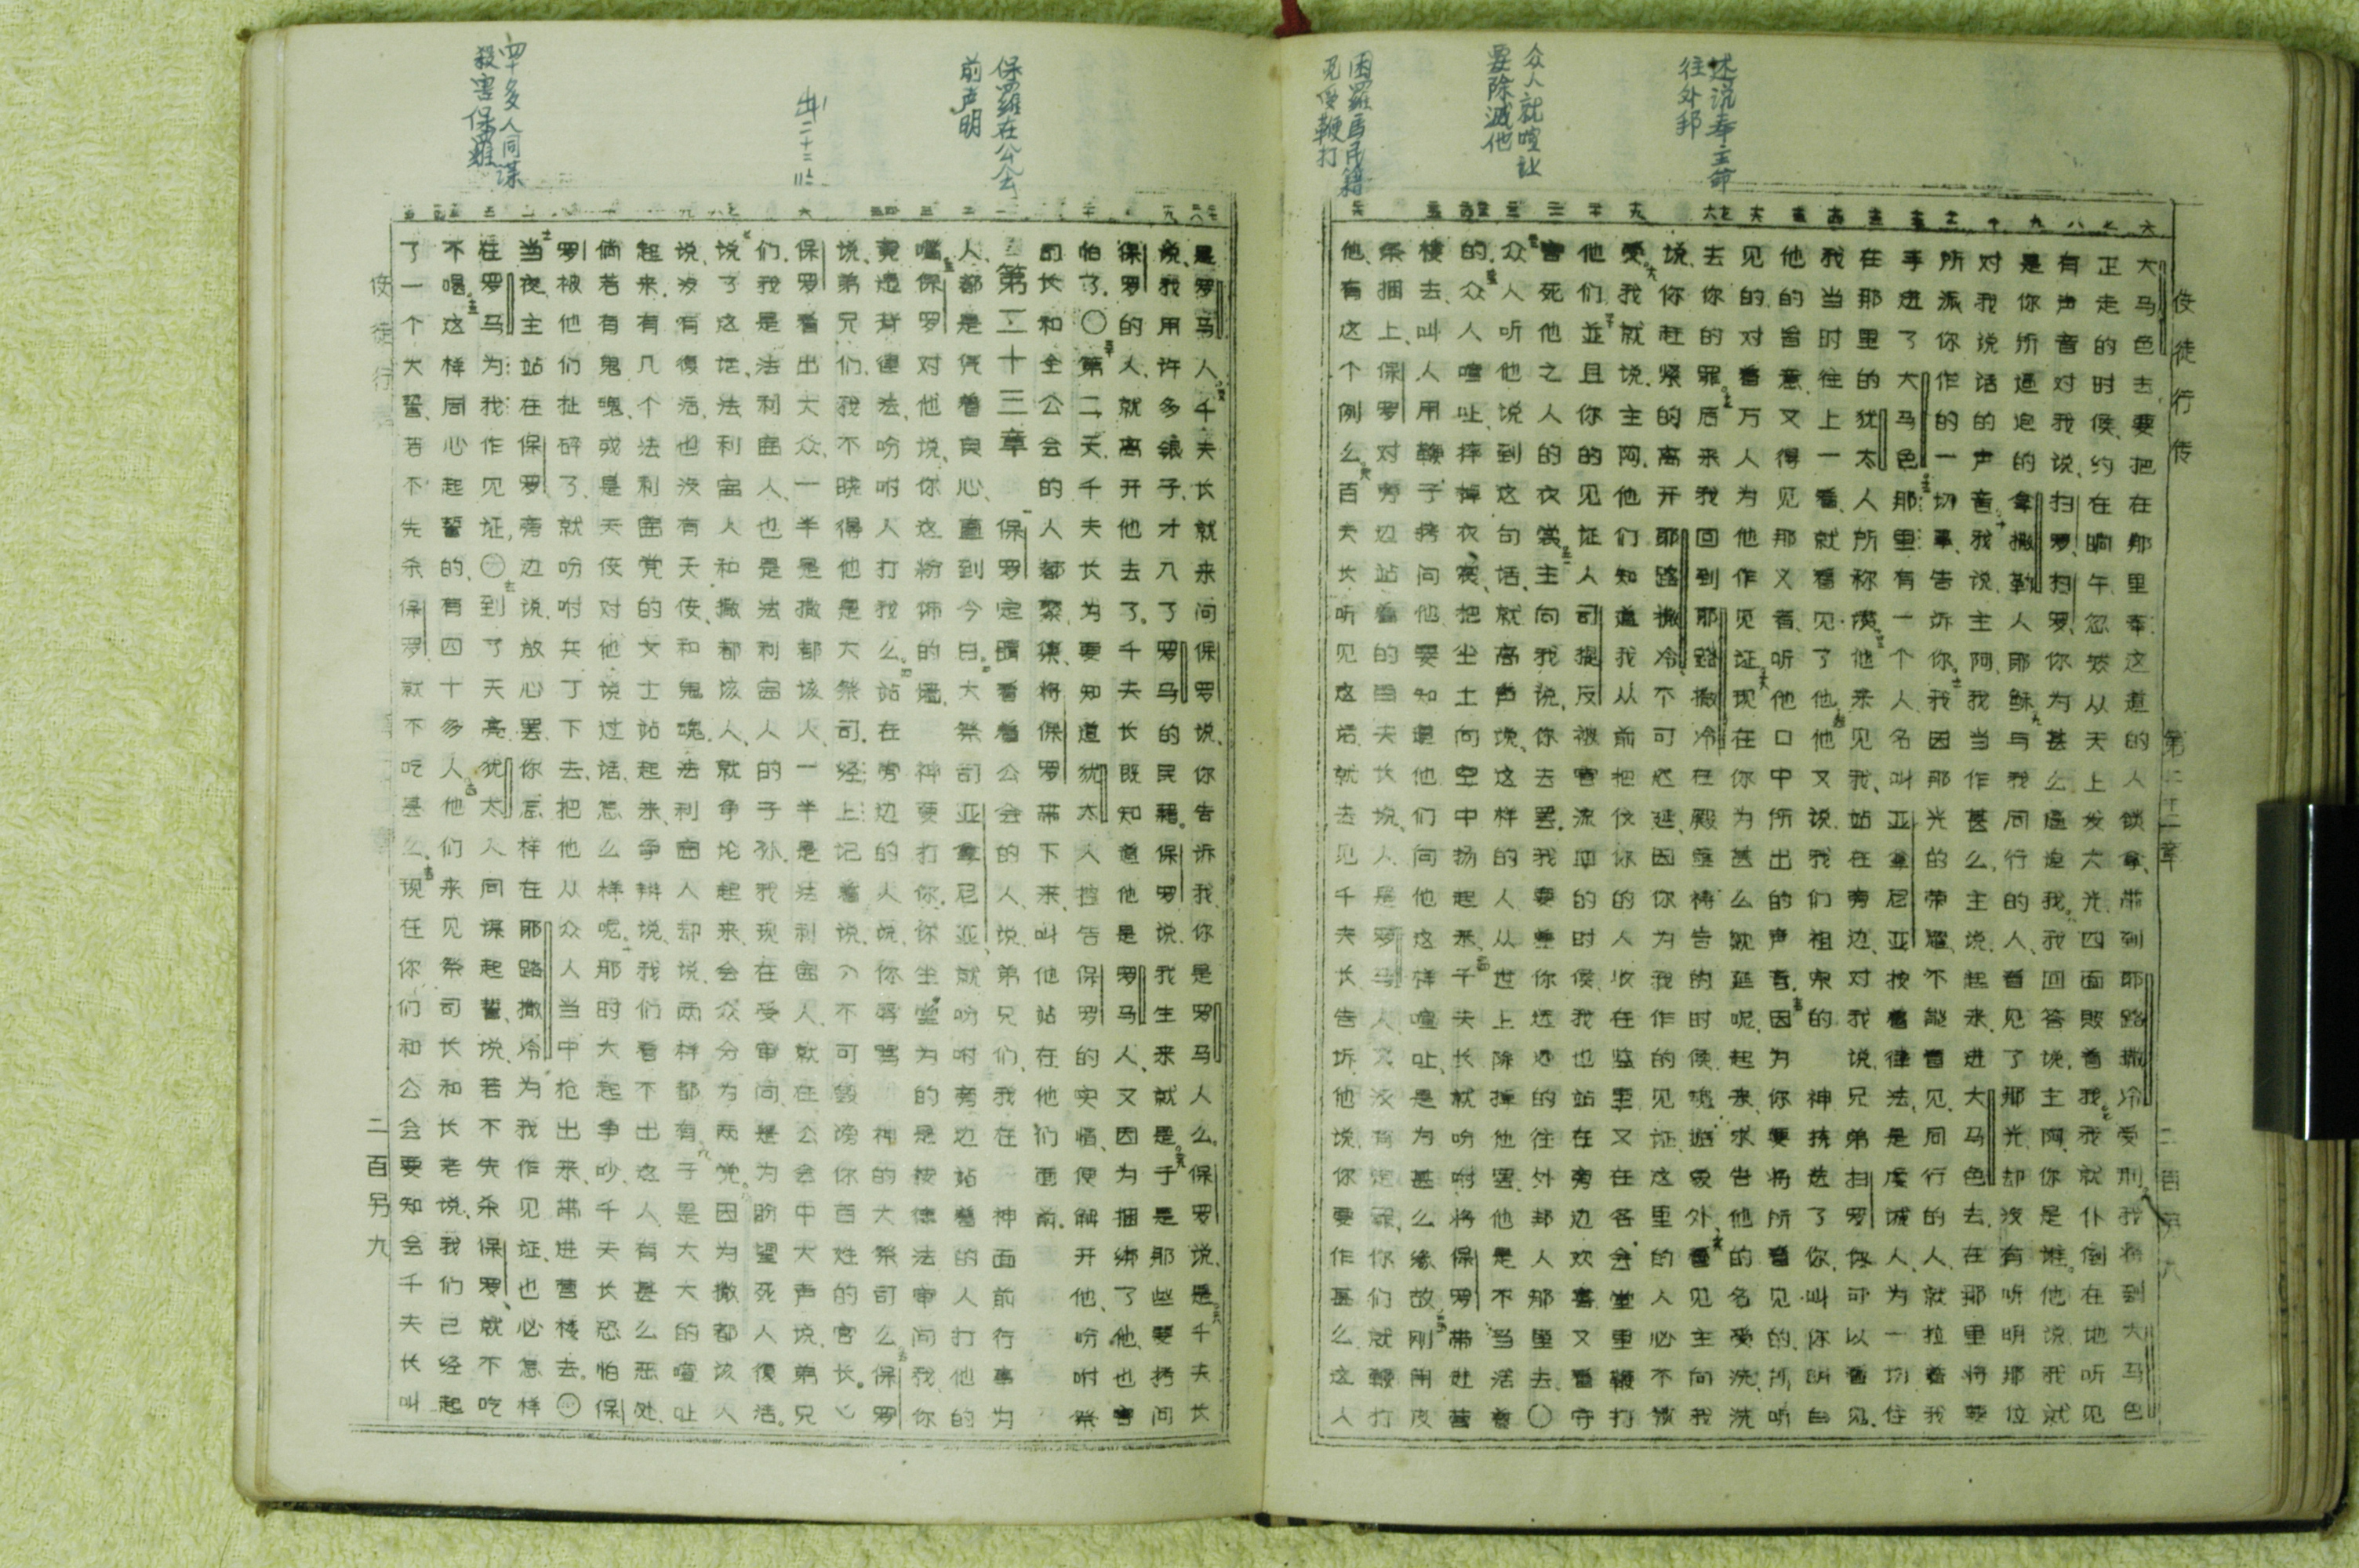 述说奉主命
往外邦
众人就喧让
要除滅他
因羅馬民籍
免受鞭打
使徒行传
第二十二章
大马色去、要把在那里奉这道的人锁拿、带到耶路撒冷受刑我将到大马色
正走的时候、约在晌午、忽然从天上发大光、四面照着我我就仆倒在地听见
有声音对我说、扫罗扫罗、你为甚么逼迫我。我回答说、主阿、你是谁。他说我就
是你所逼迫的拿撒勒人耶稣与我同行的人、看见了那光、却没有听明那位
对我说话的声音。我说主阿、我当作甚么、主说、起来进大马色去、在那里将要
所派你作的一切事、告诉你。我因那光的荣耀、不能看见、同行的人、就拉着我
手进了大马色、那里有一个人名叫亚拿尼亚、按着律法、是虔诚人、为一切住
在那里的犹太人所称赞他来见我、站在旁边、对我说、兄弟扫罗、你可以看见、
我当时往上一看、就看见了他他又说、我们祖宗的 神拣选了你、叫你明白
他的旨意、又得见那义者、听他口中所出的声音。因为你要将所看见的、所听
见的、对着万人为他作见证现在你为甚么耽延呢、起来、求告他的名受洗、洗
去你的罪。后来我回到耶路撒冷、在殿里祷告的时候、魂游象外、看见主向我
说、你赶紧的离开耶路撒冷不可迟延、因你为我作的见证这里的人必不领
受。我就说、主阿、他们知道我从前把信你的人收在监里、又在各会堂里鞭打
他们並且你的见证人司提反、被害流血的时候、我也站在旁边欢喜、又看守
害死他之人的衣裳主向我说、你去罢、我要差你远远的往外邦人那里去〇
众人听他说到这句话、就高声说、这样的人、从世上除掉他罢、他是不当活着
的。众人喧吵、摔掉衣裳、把尘土向空中扬起来。千夫长就吩咐将保罗带进营
楼去、叫人用鞭子拷问他、要知道他们向他这样喧吵、是为甚么缘故刚用皮
条捆上、保罗对旁边站着的百夫长说、人是罗马人、又没有定罪、你们就鞭打
他、有这个例么。百夫长听见这话、就去见千夫长告诉他说、你要作甚么这人
保羅在公会
前声明
四十多人同謀
殺害保羅
是罗马人。千夫长就来问保罗说、你告诉我、你是罗马人么。保罗说、是千夫长
说、我用许多银子、才入了罗马的民籍。保罗说、我生来就是。于是那些要拷问
保罗的人、就离开他去了。千夫长既知道他是罗马人、又因为捆绑了他、也害
怕了。〇第二天、千夫长为要知道犹太人控告保罗的实情、便解开他、吩咐祭
司长和全公会的人都聚集、将保罗带下来、叫他站在他们面前。
第二十三章 保罗定睛看着公会的人、说弟兄们、我在 神面前行事为
人、都是凭着良心、直到今日。大祭司亚拿尼亚、就吩咐旁边站着的人打他的
嘴保罗对他说、你这粉饰的墙、 神要打你、你坐堂为的是按律法审问我、你
竟违背律法、吩咐人打我么。站在旁边的人说、你辱骂 神的大祭司么保罗
说、弟兄们、我不晓得他是大祭司、经上记着说、不可毁谤你百姓的官长。
保罗看出大众、一半是撒都该人、一半是法利赛人、就在公会中大声说、弟兄
们、我是法利赛人、也是法利赛人的子孙、我现在受审问、是为盼望死人复活。
说了这话、法利赛人和撒都该人、就争论起来、会众分为两党。因为撒都该人
说、没有复活、也没有天使、和鬼魂、法利赛人却说、两样都有于是大大的喧吵
起来、有几个法利赛党的文士站起来、争辩说、我们看不出这人有甚么恶处、
倘若有鬼魂、或是天使对他说过话、怎么样呢。那时大起争吵、千夫长恐怕保
罗被他们扯碎了、就吩咐兵丁下去、把他从众人当中抢出来、带进营楼去。〇
当夜、主站在保罗旁边说、放心罢、你怎样在耶路撒冷为我作见证、也必怎样
在罗马为我作见证、〇到了天亮、犹太人同谋起誓、说、若不先杀保罗、就不吃
不喝。这样同心起誓的、有四十多人他们来见祭司长和长老说、我们已经起
了一个大誓、若不先杀保罗就不吃甚么。现在你们和公会要知会千夫长叫
使徒行
二百另九